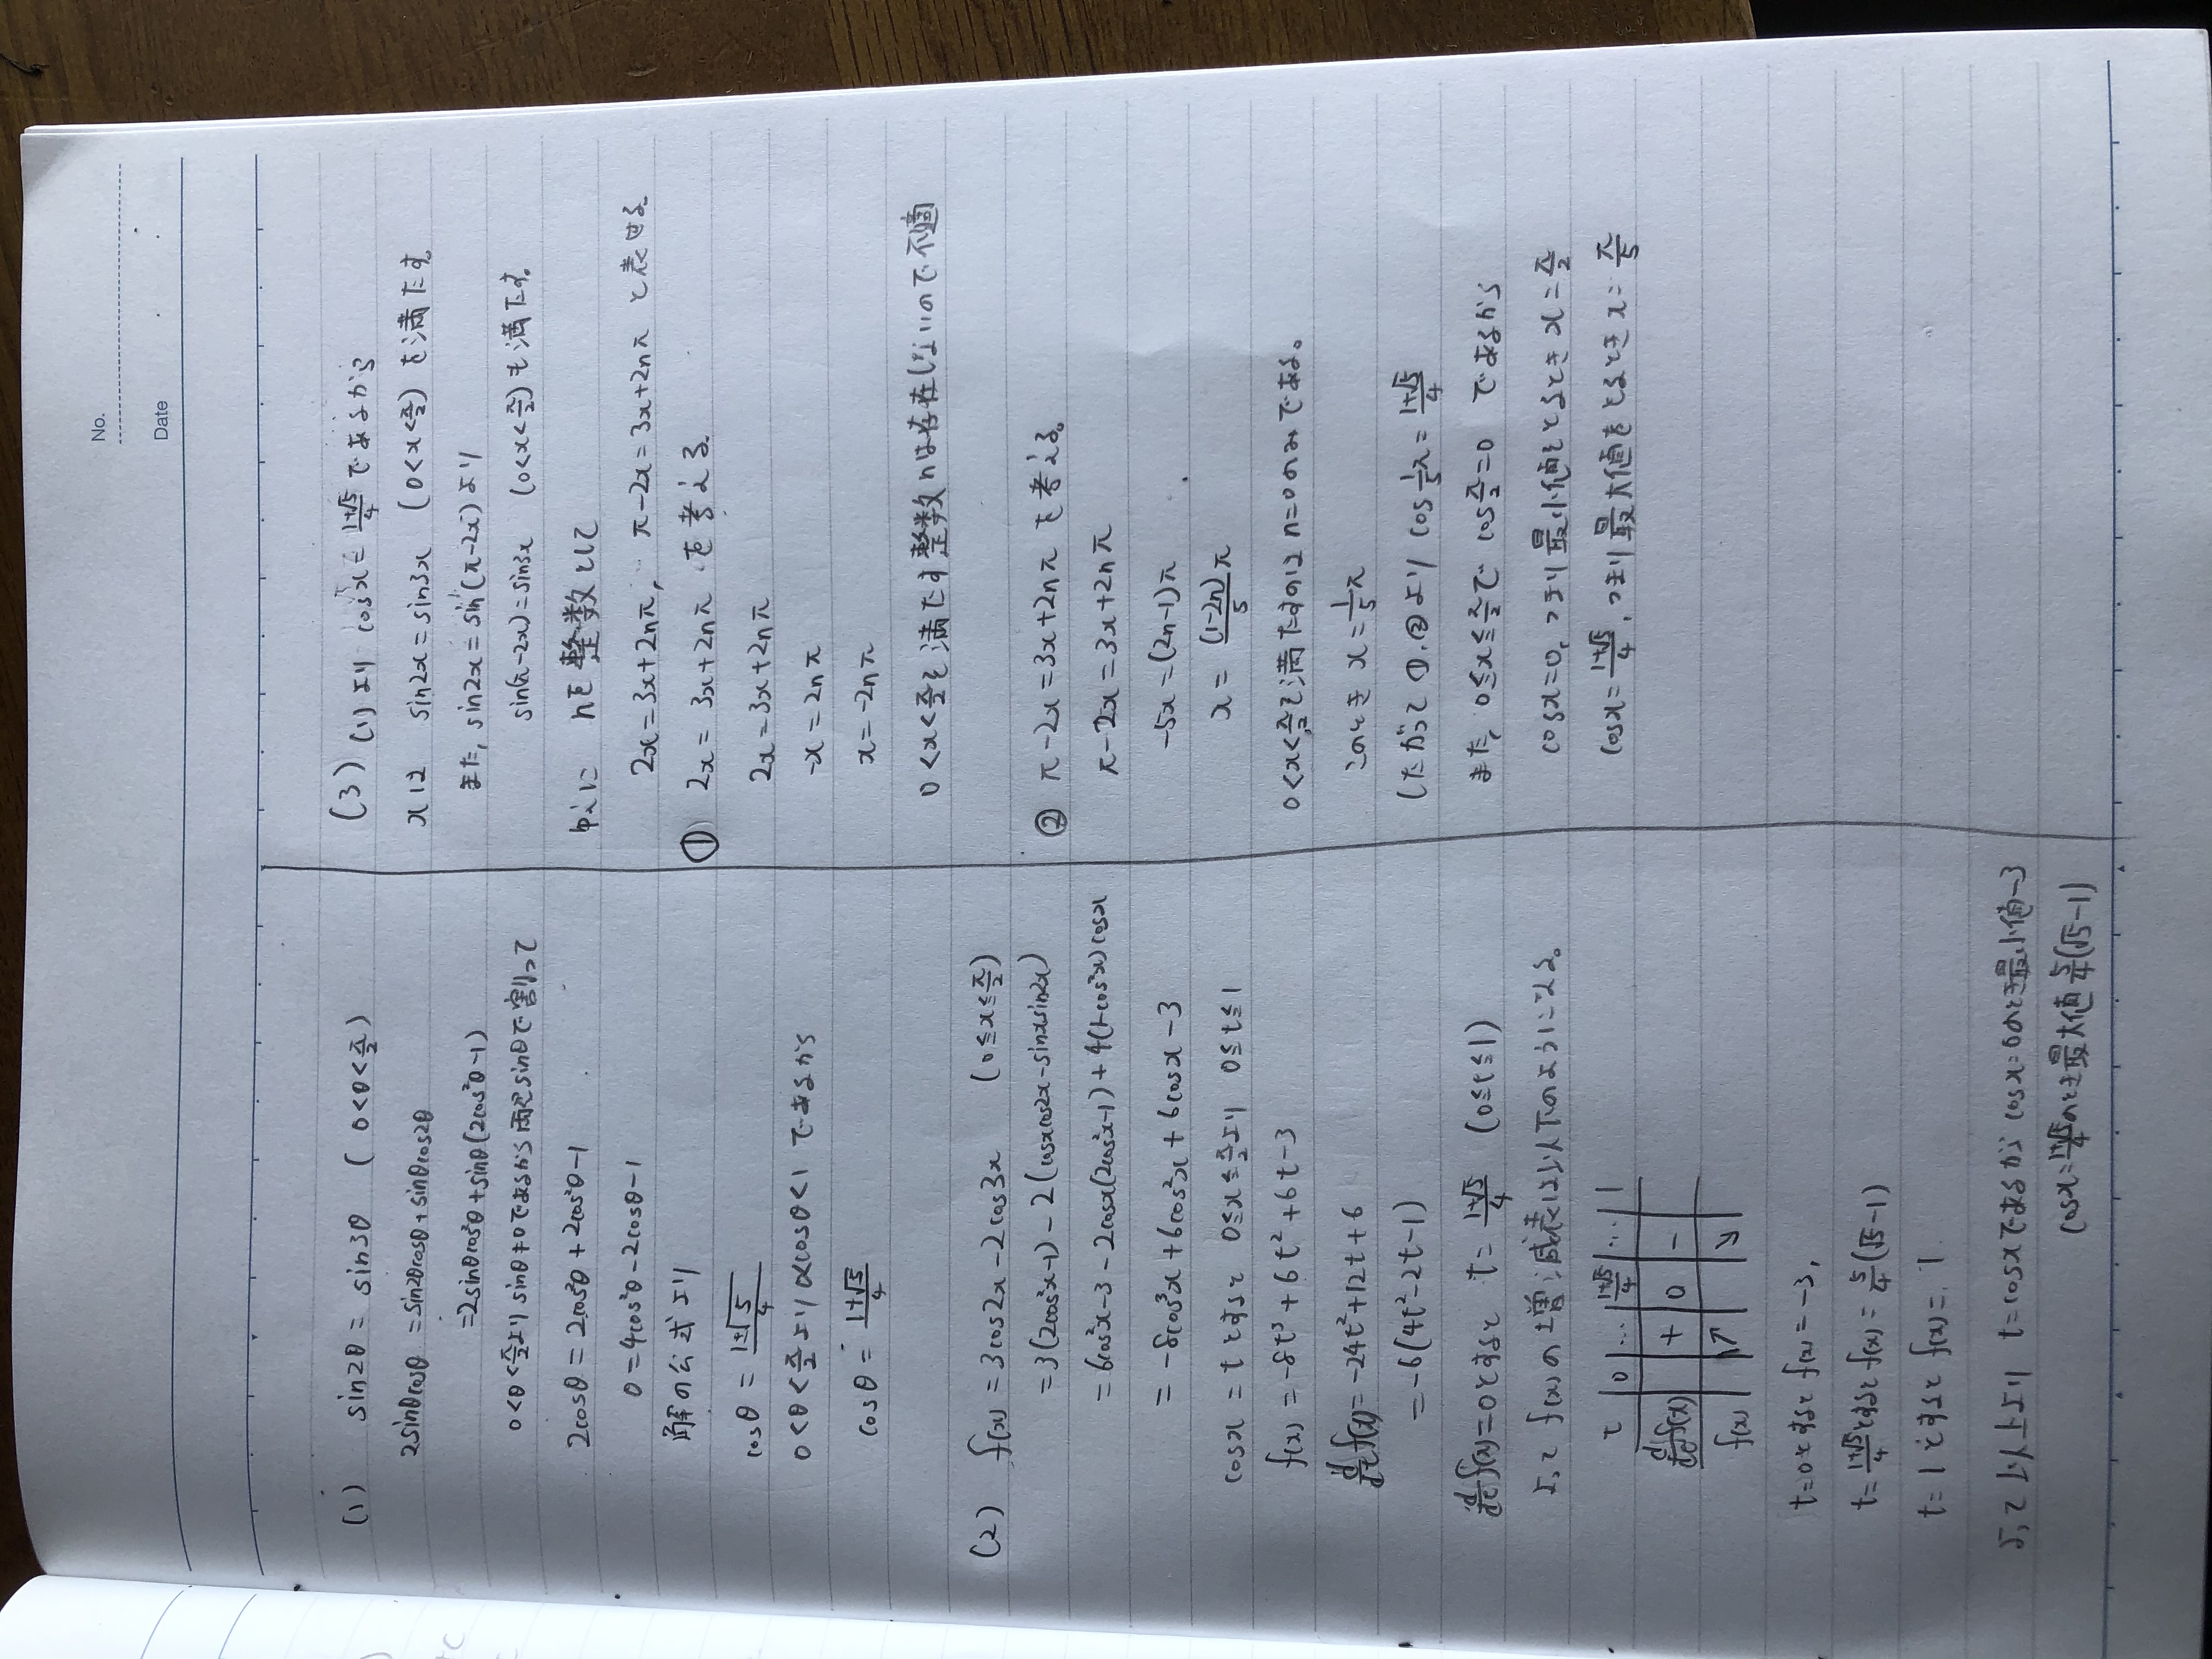 No.
Date
(1) sin2θ = sin3θ (0<θ<π/2)
2sinθcosθ = sin2θcosθ + sinθcos2θ
= 2sinθcos²θ + sinθ(2cos²θ-1)
0<θ<π/2より sinθ≠0であるから両辺sinθで割って
2cosθ = 2cos²θ + 2cos²θ-1
0 = 4cos²θ - 2cosθ - 1
解の公式より
cosθ = (1±√5)/4
0<θ<π/2より 0<cosθ<1であるから
cosθ = (1+√5)/4
(2) f(x) = 3cos2x - 2cos3x (0≦x≦π/2)
= 3(2cos²x-1) - 2(cosxcos2x - sinxsin2x)
= 6cos²x - 3 - 2cosx(2cos²x-1) + 4(1-cos²x)cosx
= -8cos³x + 6cos²x + 6cosx - 3
cosx = tとすると 0≦x≦π/2より 0≦t≦1
f(x) = -8t³ + 6t² + 6t - 3
d/dt f(x) = -24t² + 12t + 6
= -6(4t²-2t-1)
d/dt f(x) = 0とすると t = (1+√5)/4 (0≦t≦1)
よって f(x)の増減表は以下のようになる。
t | 0 | … | (1+√5)/4 | … | 1
d/dt f(x) | | + | 0 | - |
f(x) | | ↗ | | ↘ |
t=0とすると f(x)=-3,
t=(1+√5)/4とすると f(x)=5/4(√5-1)
t=1とすると f(x)=1
よって以上より t=cosxであるから cosx=0のとき最小値-3
cosx=(1+√5)/4のとき最大値5/4(√5-1)
(3) (1)より cosx=(1+√5)/4であるから
xは sin2x=sin3x (0<x<π/2)を満たす。
また, sin2x=sin(π-2x)より
sin(π-2x)=sin3x (0<x<π/2)も満たす。
ゆえに nを整数として
2x=3x+2nπ, π-2x=3x+2nπ と表せる
① 2x=3x+2nπ を考える
2x-3x+2nπ
-x=2nπ
x=-2nπ
0<x<π/2を満たす整数nは存在しないので不適
② π-2x=3x+2nπ を考える。
π-2x=3x+2nπ
-5x=(2n-1)π
x=(1-2n)/5 π
0<x<π/2を満たすのは n=0のみである。
このとき x=1/5π
したがって ①,②より cos1/5π=(1+√5)/4
また, 0≦x≦π/2で cosπ/2=0 であるから
cosx=0, つまり最小値をとるとき x=π/2
cosx=(1+√5)/4, つまり最大値をとるとき x=π/5